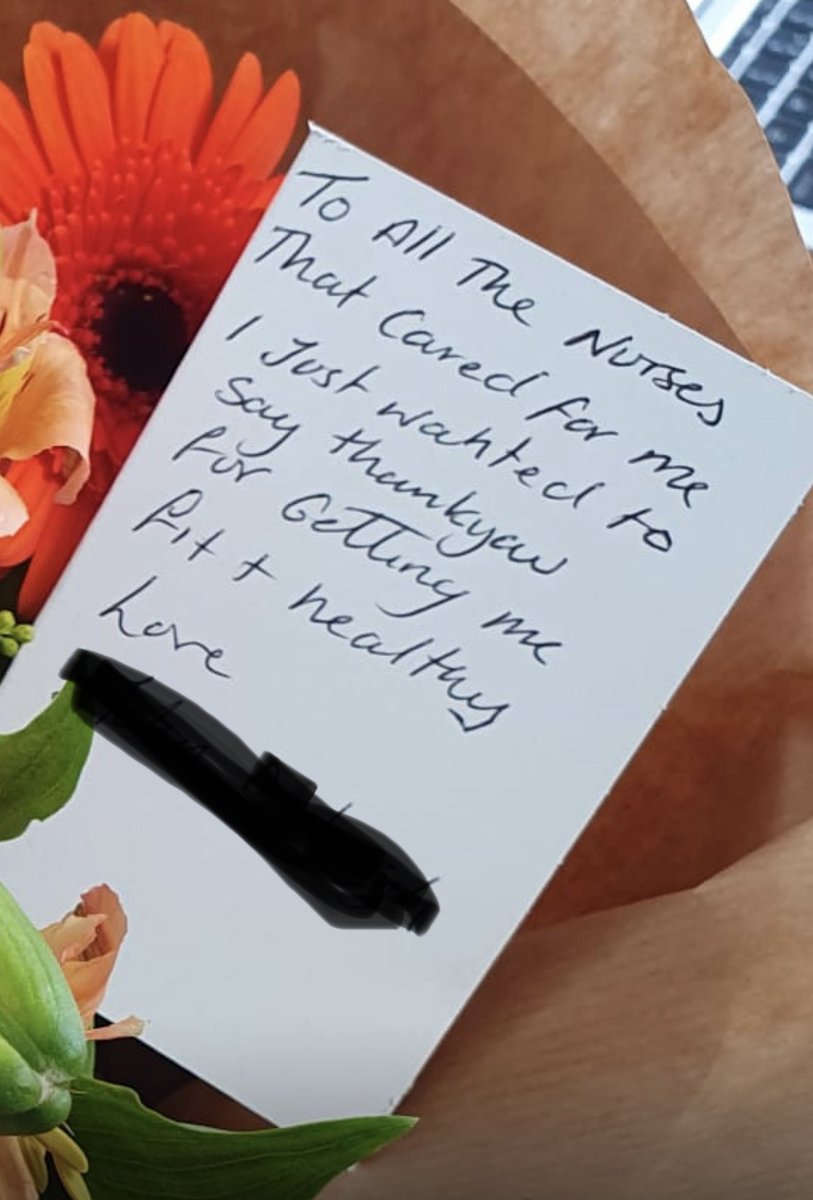 To All The Nurses
That Cared for me
I Just wanted to
Say thankyou
for Getting me
fit + healthy
Love